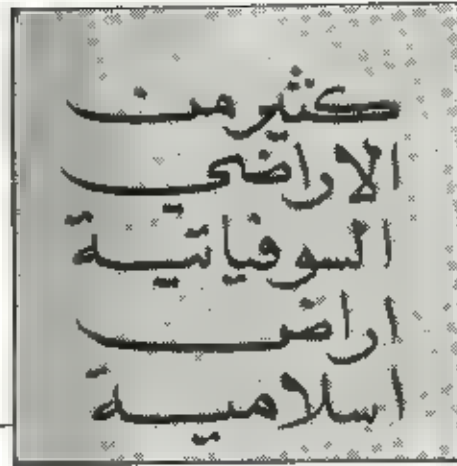 كثير من
الاراضي
السوفياتية
اراض
اسلامية